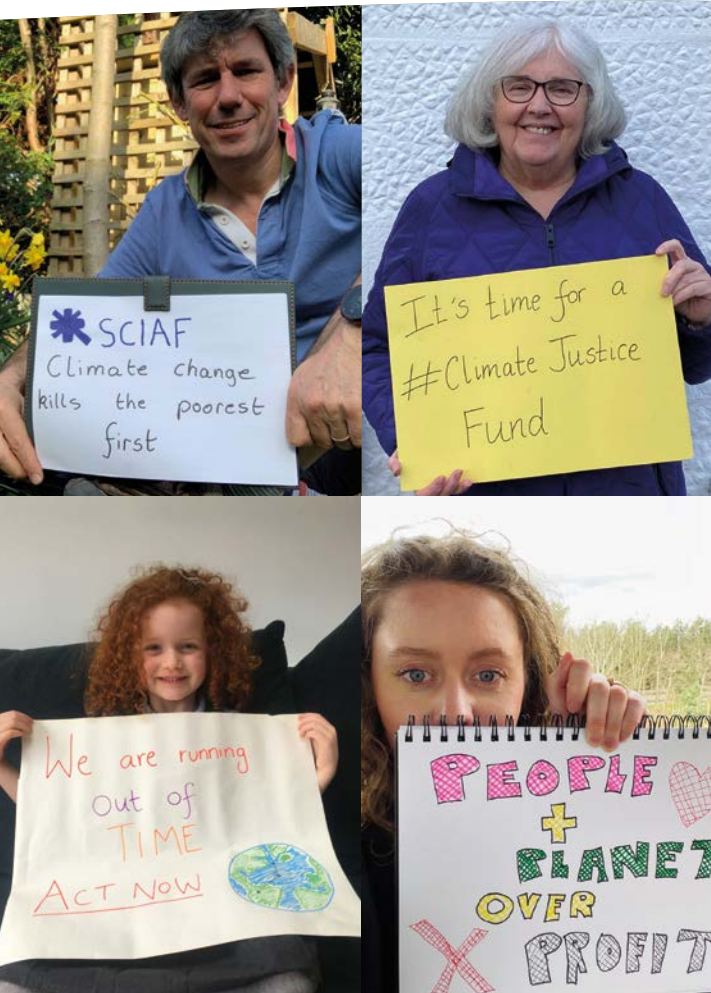 SCIAF
Climate change
kills the poorest
first
It's time for a
#Climate Justice
Fund
We are running
out of
TIME
ACT NOW
PEOPLE
+
PLANET
OVER
PROFIT